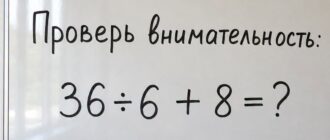 Проверь внимательность:
36÷6 + 8 = ?